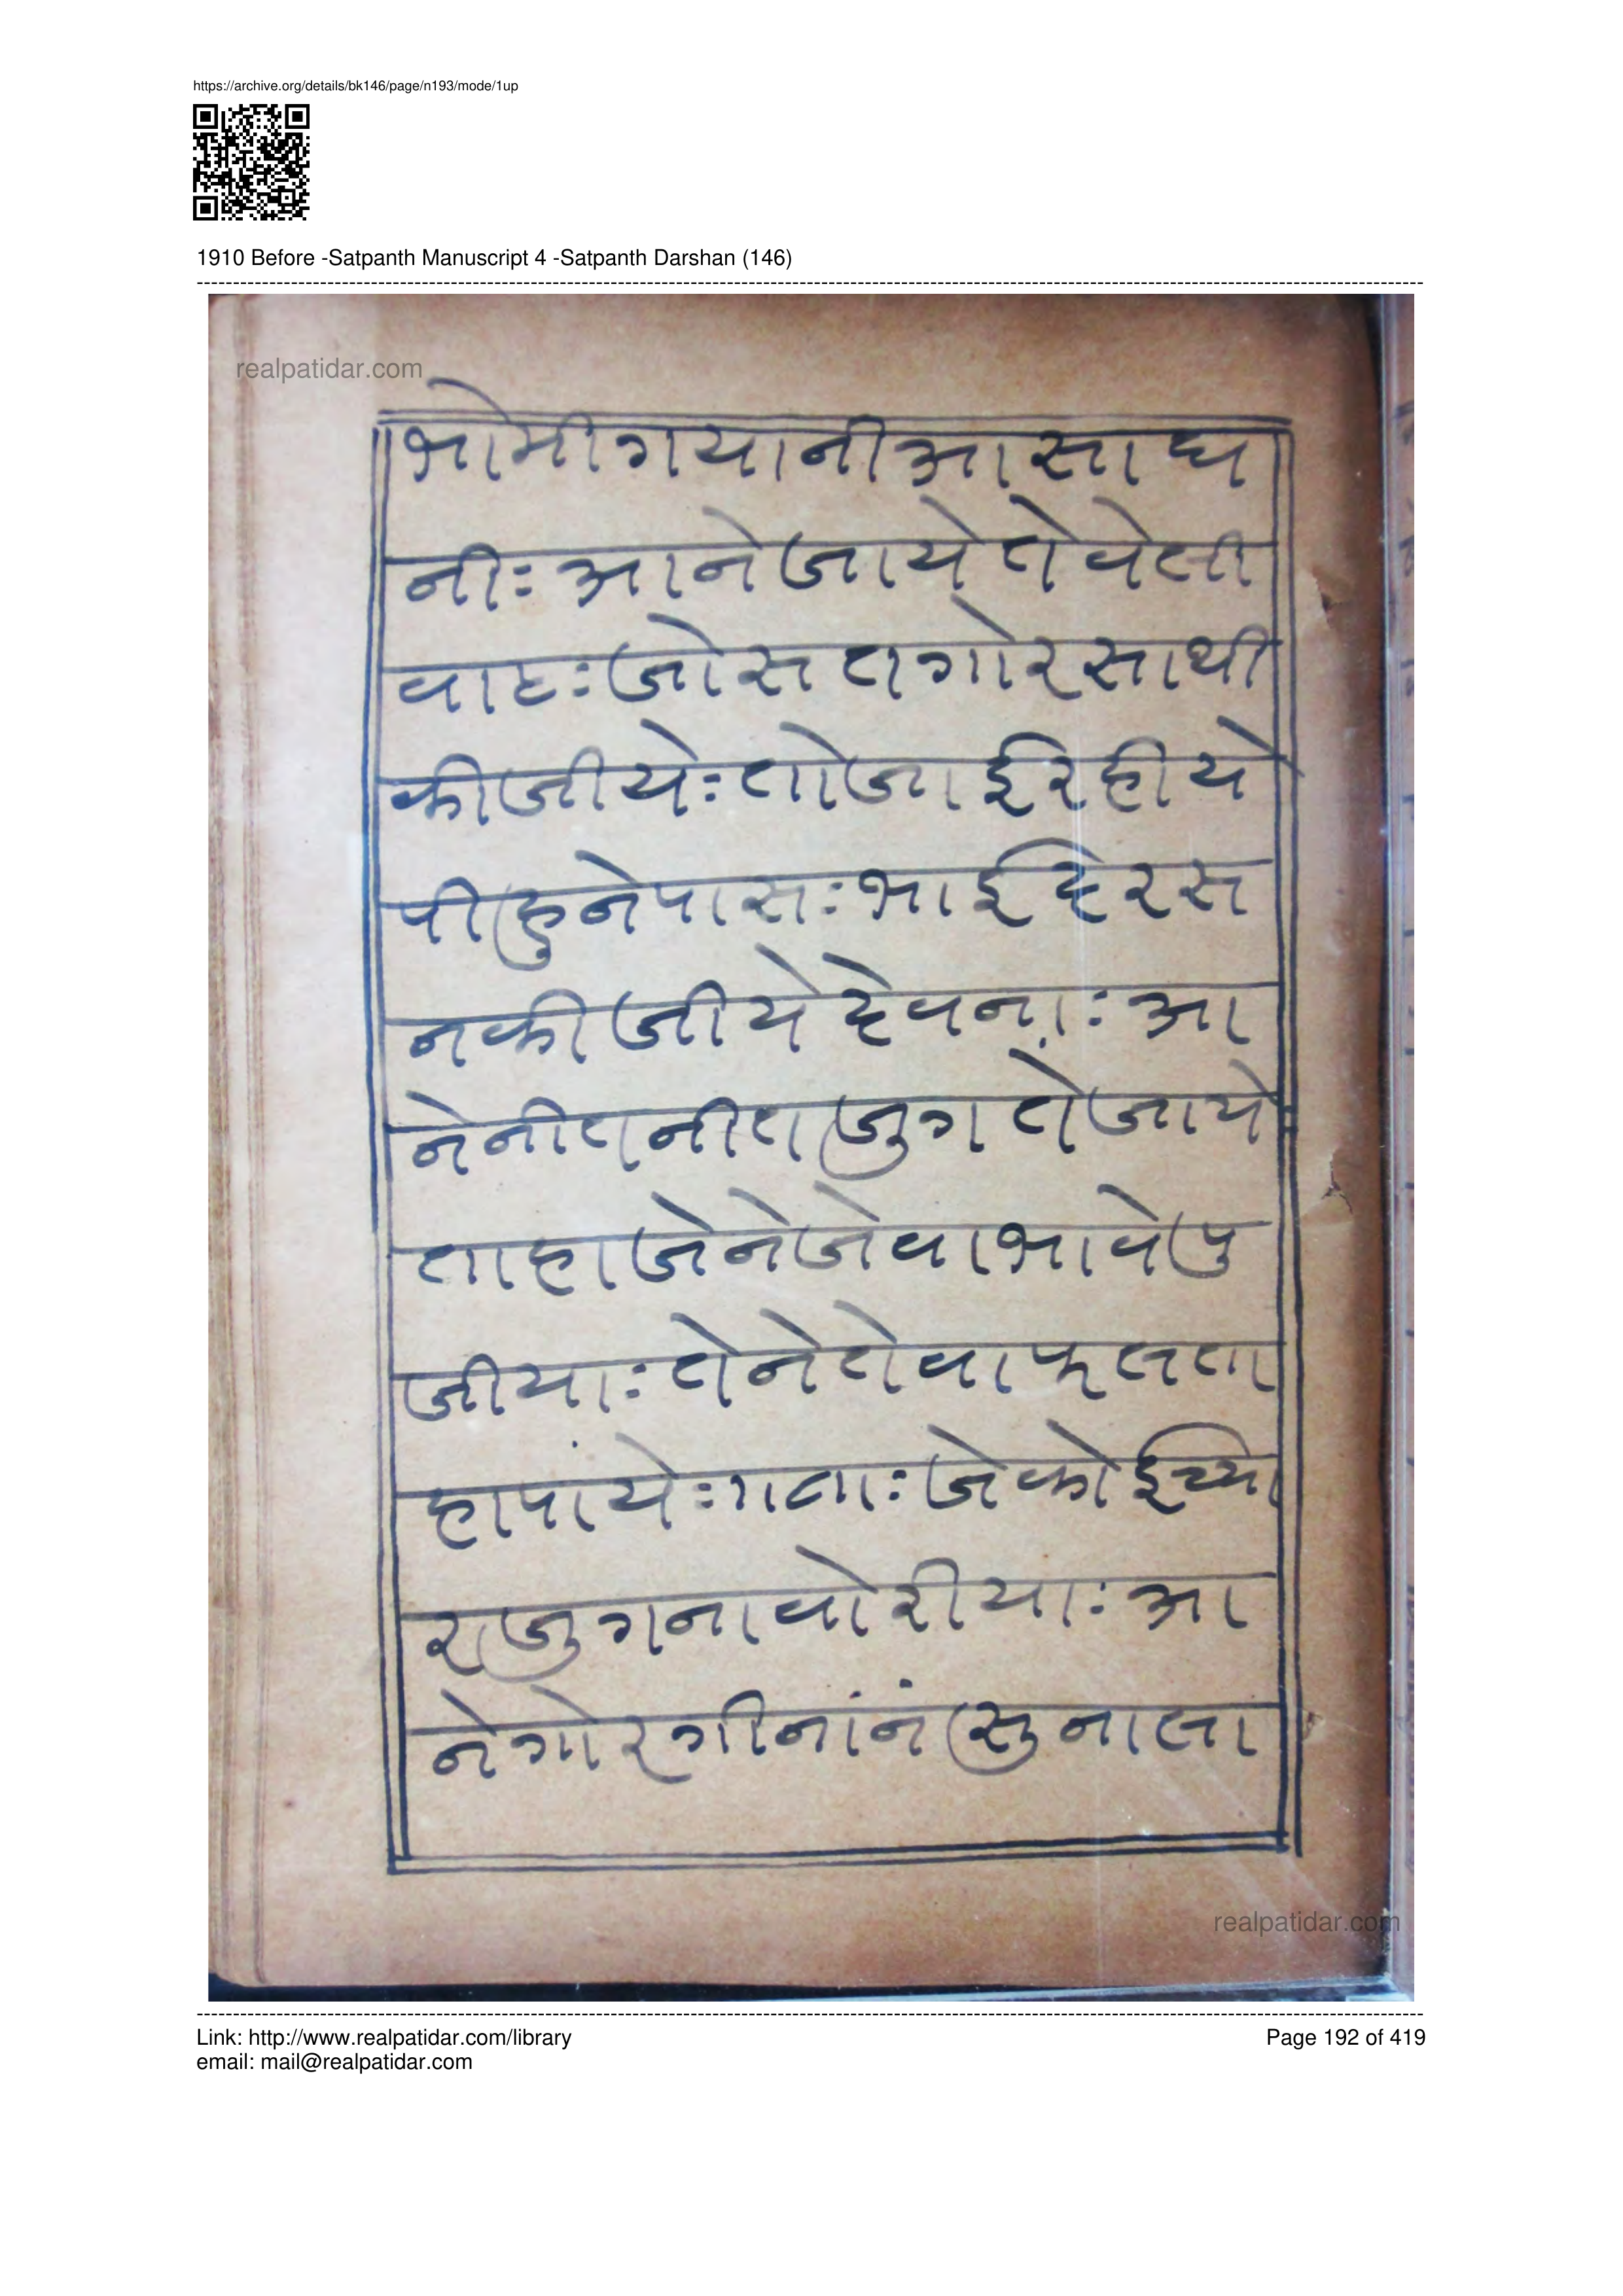 https://archive.org/details/bk146/page/n193/mode/1up
1910 Before -Satpanth Manuscript 4 -Satpanth Darshan (146)
realpatidar.com
भोमीगयानीआसाध
नीः आनेजायेतेवेली
वाटःजोसतगोरसाथी
कीजीयेःतोजाईरहीये
पीहुनेपासःभाईदरस
नकीजीयेदेवनाः आ
नेनीतनीतजुगतेजाये
ताहाजेनेजेवाभावेपु
जीयाःतेनेतेवाफलता
हापांयेः१५ताःजेकोईच्या
रजुगनावोरीयाः आ
नेगोरगीनांनंसुनाला
realpatidar.com
Link: http://www.realpatidar.com/library
email: mail@realpatidar.com
Page 192 of 419